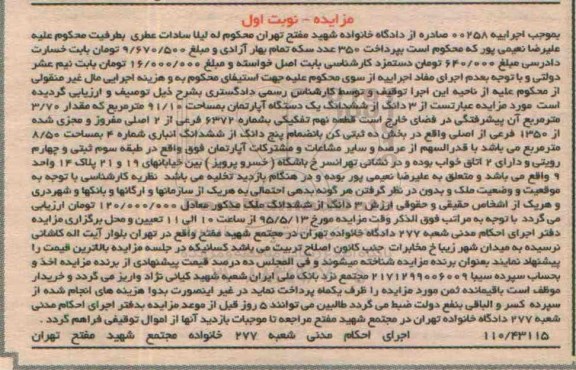 مزایده - نوبت اول
بموجب اجراییه ۰۰۲۵۸ صادره از دادگاه خانواده شهید مفتح تهران محکوم له لیلا سادات عطری بطرفیت محکوم علیه
علیرضا نعیمی پور که محکوم است بپرداخت ۳۵۰ عدد سکه تمام بهار آزادی و مبلغ ۹/۶۷۰/۵۰۰ تومان بابت خسارت
دادرسی مبلغ ۶۴۰/۰۰۰ تومان دستمزد کارشناسی بابت اصل خواسته و مبلغ ۱۶/۰۰۰/۰۰۰ تومان بابت نیم عشر
دولتی و با توجه بعدم اجرای مفاد اجراییه از سوی محکوم علیه جهت استیفای محکوم به و هزینه اجرایی مال غیر منقولی
از محکوم علیه از ناحیه این اجرا توقیف و توسط کارشناس رسمی دادگستری بشرح ذیل توصیف و ارزیابی گردیده
است مورد مزایده عبارتست از ۳ دانگ از ششدانگ یک دستگاه آپارتمان بمساحت ۹۱/۱۰ مترمربع که مقدار ۳/۷۰
مترمربع آن پیشرفتگی در فضای خارج است قطعه نهم تفکیکی بشماره ۶۳۷۲ فرعی از ۲ اصلی مفروز و مجزی شده
از ۱۳۵۰ فرعی از اصلی واقع در بخش ده ثبتی کن بانضمام پنج دانگ از ششدانگ انباری شماره ۴ بمساحت ۸/۵۰
مترمربع می باشد با قدرالسهم از عرصه و سایر مشاعات و مشترکات آپارتمان فوق واقع در طبقه سوم ثبتی و چهارم
رویتی و دارای ۲ اتاق خواب بوده و در نشانی تهرانسر خ باشگاه (خسرو پرویز) بین خیابانهای ۱۹ و ۲۱ پلاک ۱۴ واحد
۹ واقع می باشد و متعلق به علیرضا نعیمی پور بوده و در هنگام بازدید تخلیه می باشد نظریه کارشناسی با توجه به
موقعیت و وضعیت ملک و بدون در نظر گرفتن هر گونه بدهی احتمالی به هریک از سازمانها و ارگانها و بانکها و شهرداری
و هریک از اشخاص حقیقی و حقوقی ارزش ۳ دانگ از ششدانگ ملک مذکور معادل ۱۲۰/۰۰۰/۰۰۰ تومان ارزیابی
می گردد با توجه به مراتب فوق الذکر وقت مزایده مورخ ۹۵/۵/۱۳ از ساعت ۱۰ الی ۱۱ تعیین و محل برگزاری مزایده
دفتر اجرای احکام مدنی شعبه ۲۷۷ دادگاه خانواده تهران در مجتمع شهید مفتح واقع در تهران بلوار آیت اله کاشانی
نرسیده به میدان شهر زیبا خ مخابرات جنب کانون اصلاح تربیت می باشد کسانیکه در جلسه مزایده بالاترین قیمت را
پیشنهاد نمایند بعنوان برنده مزایده شناخته میشوند و فی المجلس ده درصد قیمت پیشنهادی از برنده مزایده اخذ و
بحساب سپرده سیبا ۲۱۷۱۲۹۹۰۰۶۰۰۹ مجتمع نزد بانک ملی ایران شعبه شهید کیانی نژاد واریز می گردد و خریدار
موظف است باقیمانده ثمن مورد مزایده را ظرف یکماه پرداخت نماید در غیر اینصورت بدوا هزینه های انجام شده از
سپرده کسر و الباقی بنفع دولت ضبط می گردد طالبین می توانند ۵ روز قبل از موعد مزایده بدفتر اجرای احکام مدنی
شعبه ۲۷۷ دادگاه خانواده تهران در مجتمع شهید مفتح مراجعه تا موجبات بازدید آنها از اموال توقیفی فراهم گردد .
۱۱۰/۴۳۱۱۵ اجرای احکام مدنی شعبه ۲۷۷ خانواده مجتمع شهید مفتح تهران